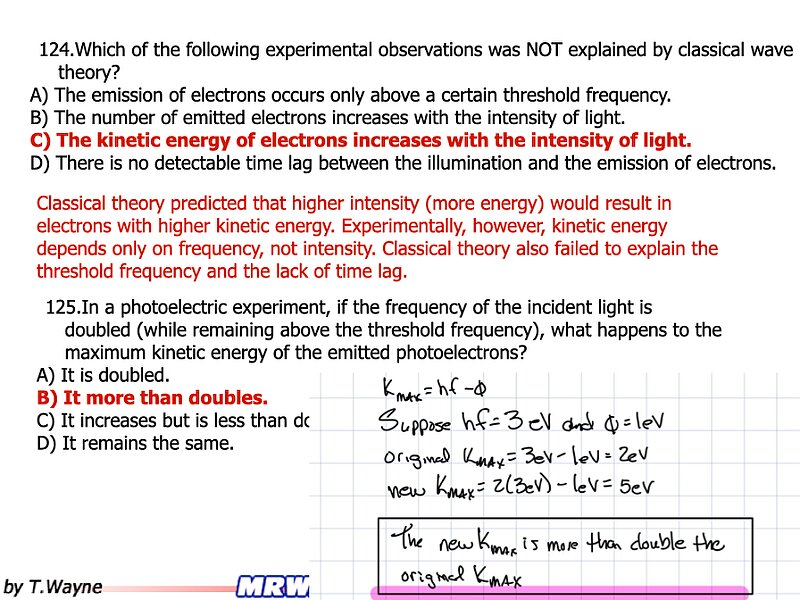 124.Which of the following experimental observations was NOT explained by classical wave
theory?
A) The emission of electrons occurs only above a certain threshold frequency.
B) The number of emitted electrons increases with the intensity of light.
C) The kinetic energy of electrons increases with the intensity of light.
D) There is no detectable time lag between the illumination and the emission of electrons.
Classical theory predicted that higher intensity (more energy) would result in
electrons with higher kinetic energy. Experimentally, however, kinetic energy
depends only on frequency, not intensity. Classical theory also failed to explain the
threshold frequency and the lack of time lag.
125.In a photoelectric experiment, if the frequency of the incident light is
doubled (while remaining above the threshold frequency), what happens to the
maximum kinetic energy of the emitted photoelectrons?
A) It is doubled.
B) It more than doubles.
C) It increases but is less than do
D) It remains the same.
KMAX = hf - Φ
Suppose hf = 3 eV and Φ = 1eV
original KMAX = 3eV - 1eV = 2eV
new KMAX = 2(3eV) - 1eV = 5eV
The new KMAX is more than double the
original KMAX
by T.Wayne
MRW